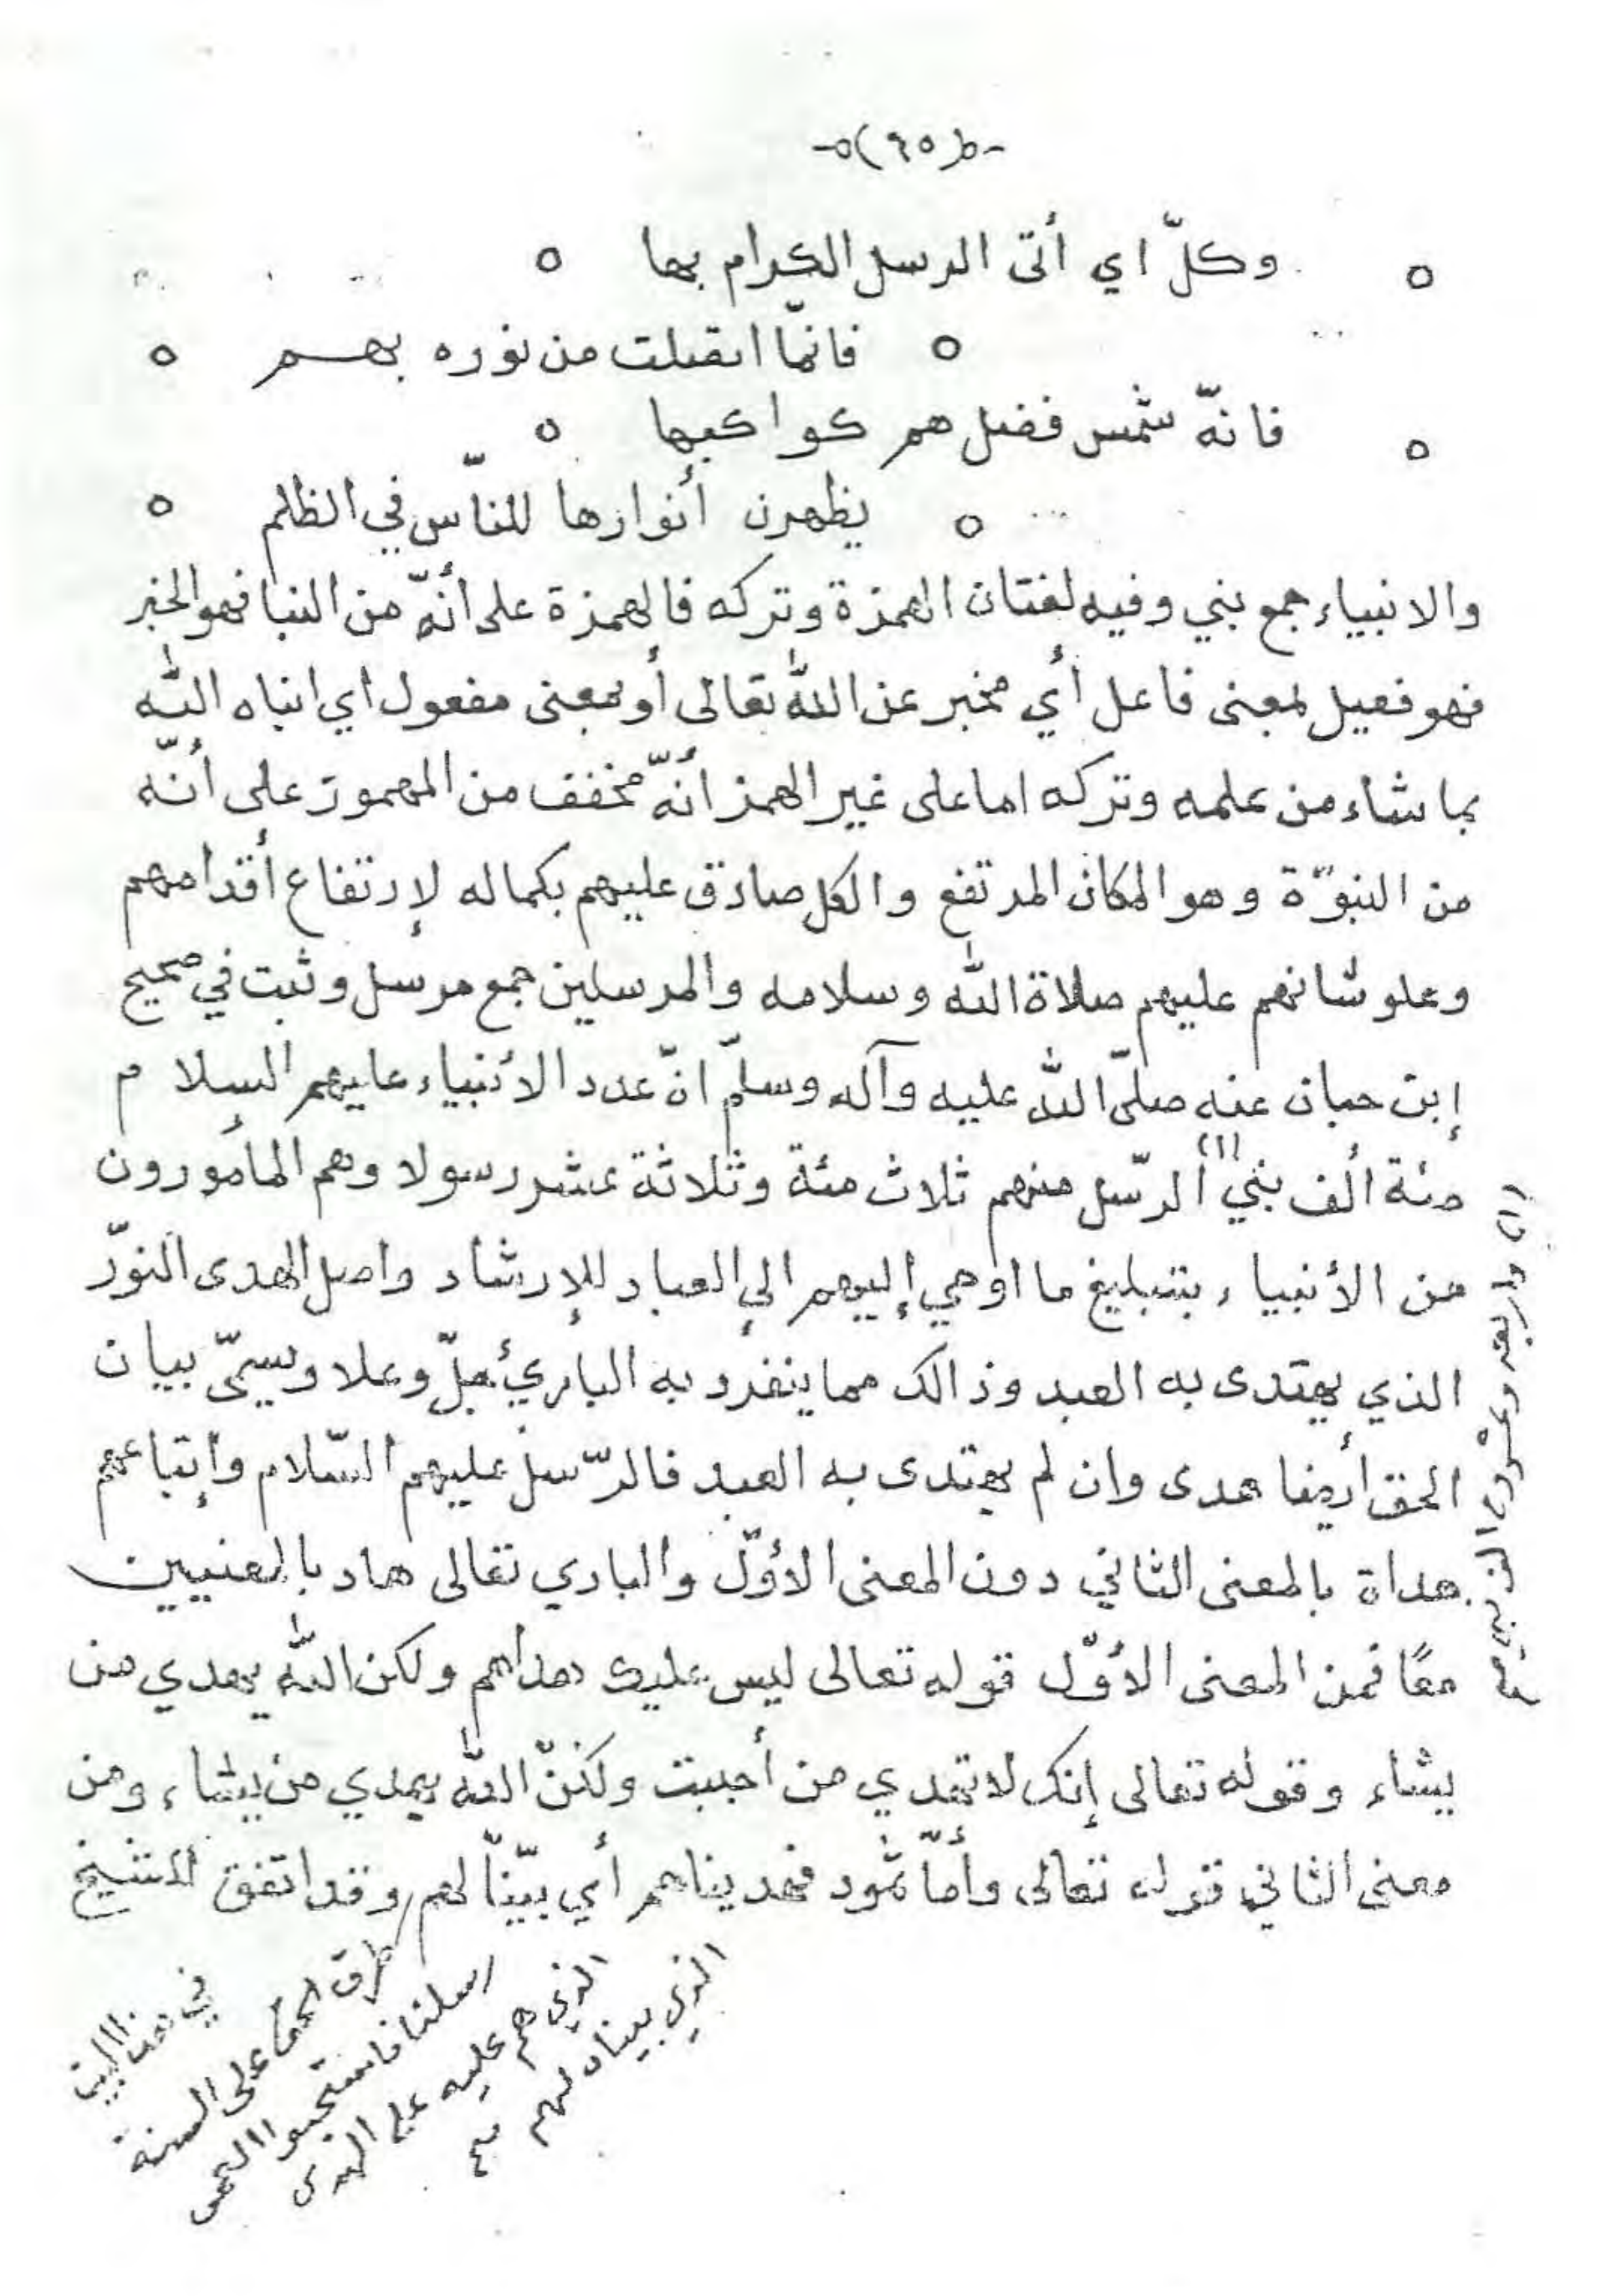 -٥(٦٥)٥-
٥ وكلّ اي أتى الرسل الكرام بها ٥
٥ فانمّا اتصلت من نوره بهم ٥
٥ فانهّ شمس فضل هم كواكبها ٥
٥ يظهرن أنوارها للناّس في الظلم ٥
والانبياء جمع نبي وفيه لغتان الهمزة وتركه فالهمزة على أنهّ من النبأ فهو الخبر
فهو فعيل بمعنى فاعل أي مخبر عن الله تعالى أو بمعنى مفعول أي انباه الله
بما شاء من علمه وتركه اما على غير الهمز أنهّ مخفف من المهموز على أنهّ
من النبوّة وهو المكان المرتفع والكل صادق عليهم بكماله لإرتفاع أقدامهم
وعلو شانهم عليهم صلاة الله وسلامه والمرسلين جمع مرسل وثبت في صحيح
إبن حبان عنه صلىّ الله عليه وآله وسلمّ انّ عدد الأنبياء عليهم السلام
مئة ألف نبي (١) الرسّل منهم ثلاث مئة وثلاثة عشر رسولا وهم المأمورون
من الأنبياء بتبليغ ما اوحي إليهم الى العباد للإرشاد واصل الهدى النورّ
الذي يهتدى به العبد وذالك مما ينفرد به الباريء جلّ وعلا ويسمىّ بيان
الحق أيضا هدى وان لم يهتدى به العبد فالرسّل عليهم السّلام وإتباعهم
هداة بالمعنى الثاني دون المعنى الأوّل والباري تعالى هاد بالمعنيين
معًا فمن المعنى الأوّل قوله تعالى ليس عليك هداهم ولكن الله يهدي من
يشاء وقوله تعالى إنك لا تهدي من أحببت ولكنّ الله يهدي من يشاء ومن
معنى الثاني قوله تعالى وأماّ ثمود فهديناهم أي بينّاّ لهم وقد اتفق للشيخ
(١) واربعة وعشرون الف نبي تمت
طرق الحق على السنة
رسلنا فاستحبوا العمى
الذي هم عليه على الهدى
الذي بيناه لهم
في هذا البيت